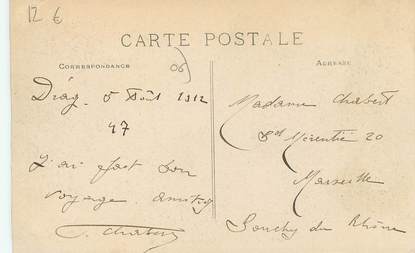 12 €
CARTE POSTALE
CORRESPONDANCE
06
ADRESSE
5 Août 1912
47
J'ai fait bon
voyage. amitiés
Chabert
Madame Chabert
Bd Mérentié 20
Marseille
Bouches du Rhône